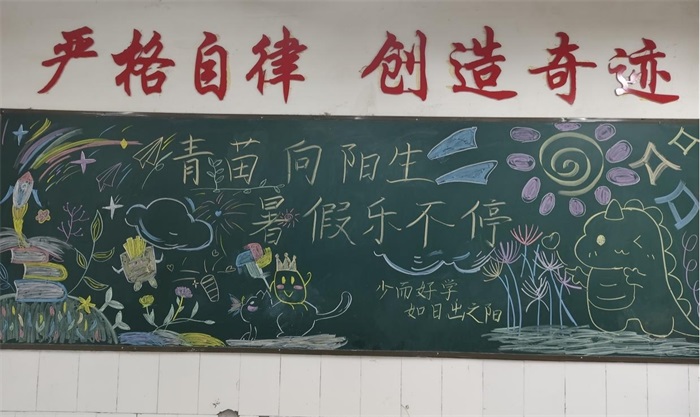 严格自律 创造奇迹
青苗向阳生
暑假乐不停
少而好学
如日出之阳